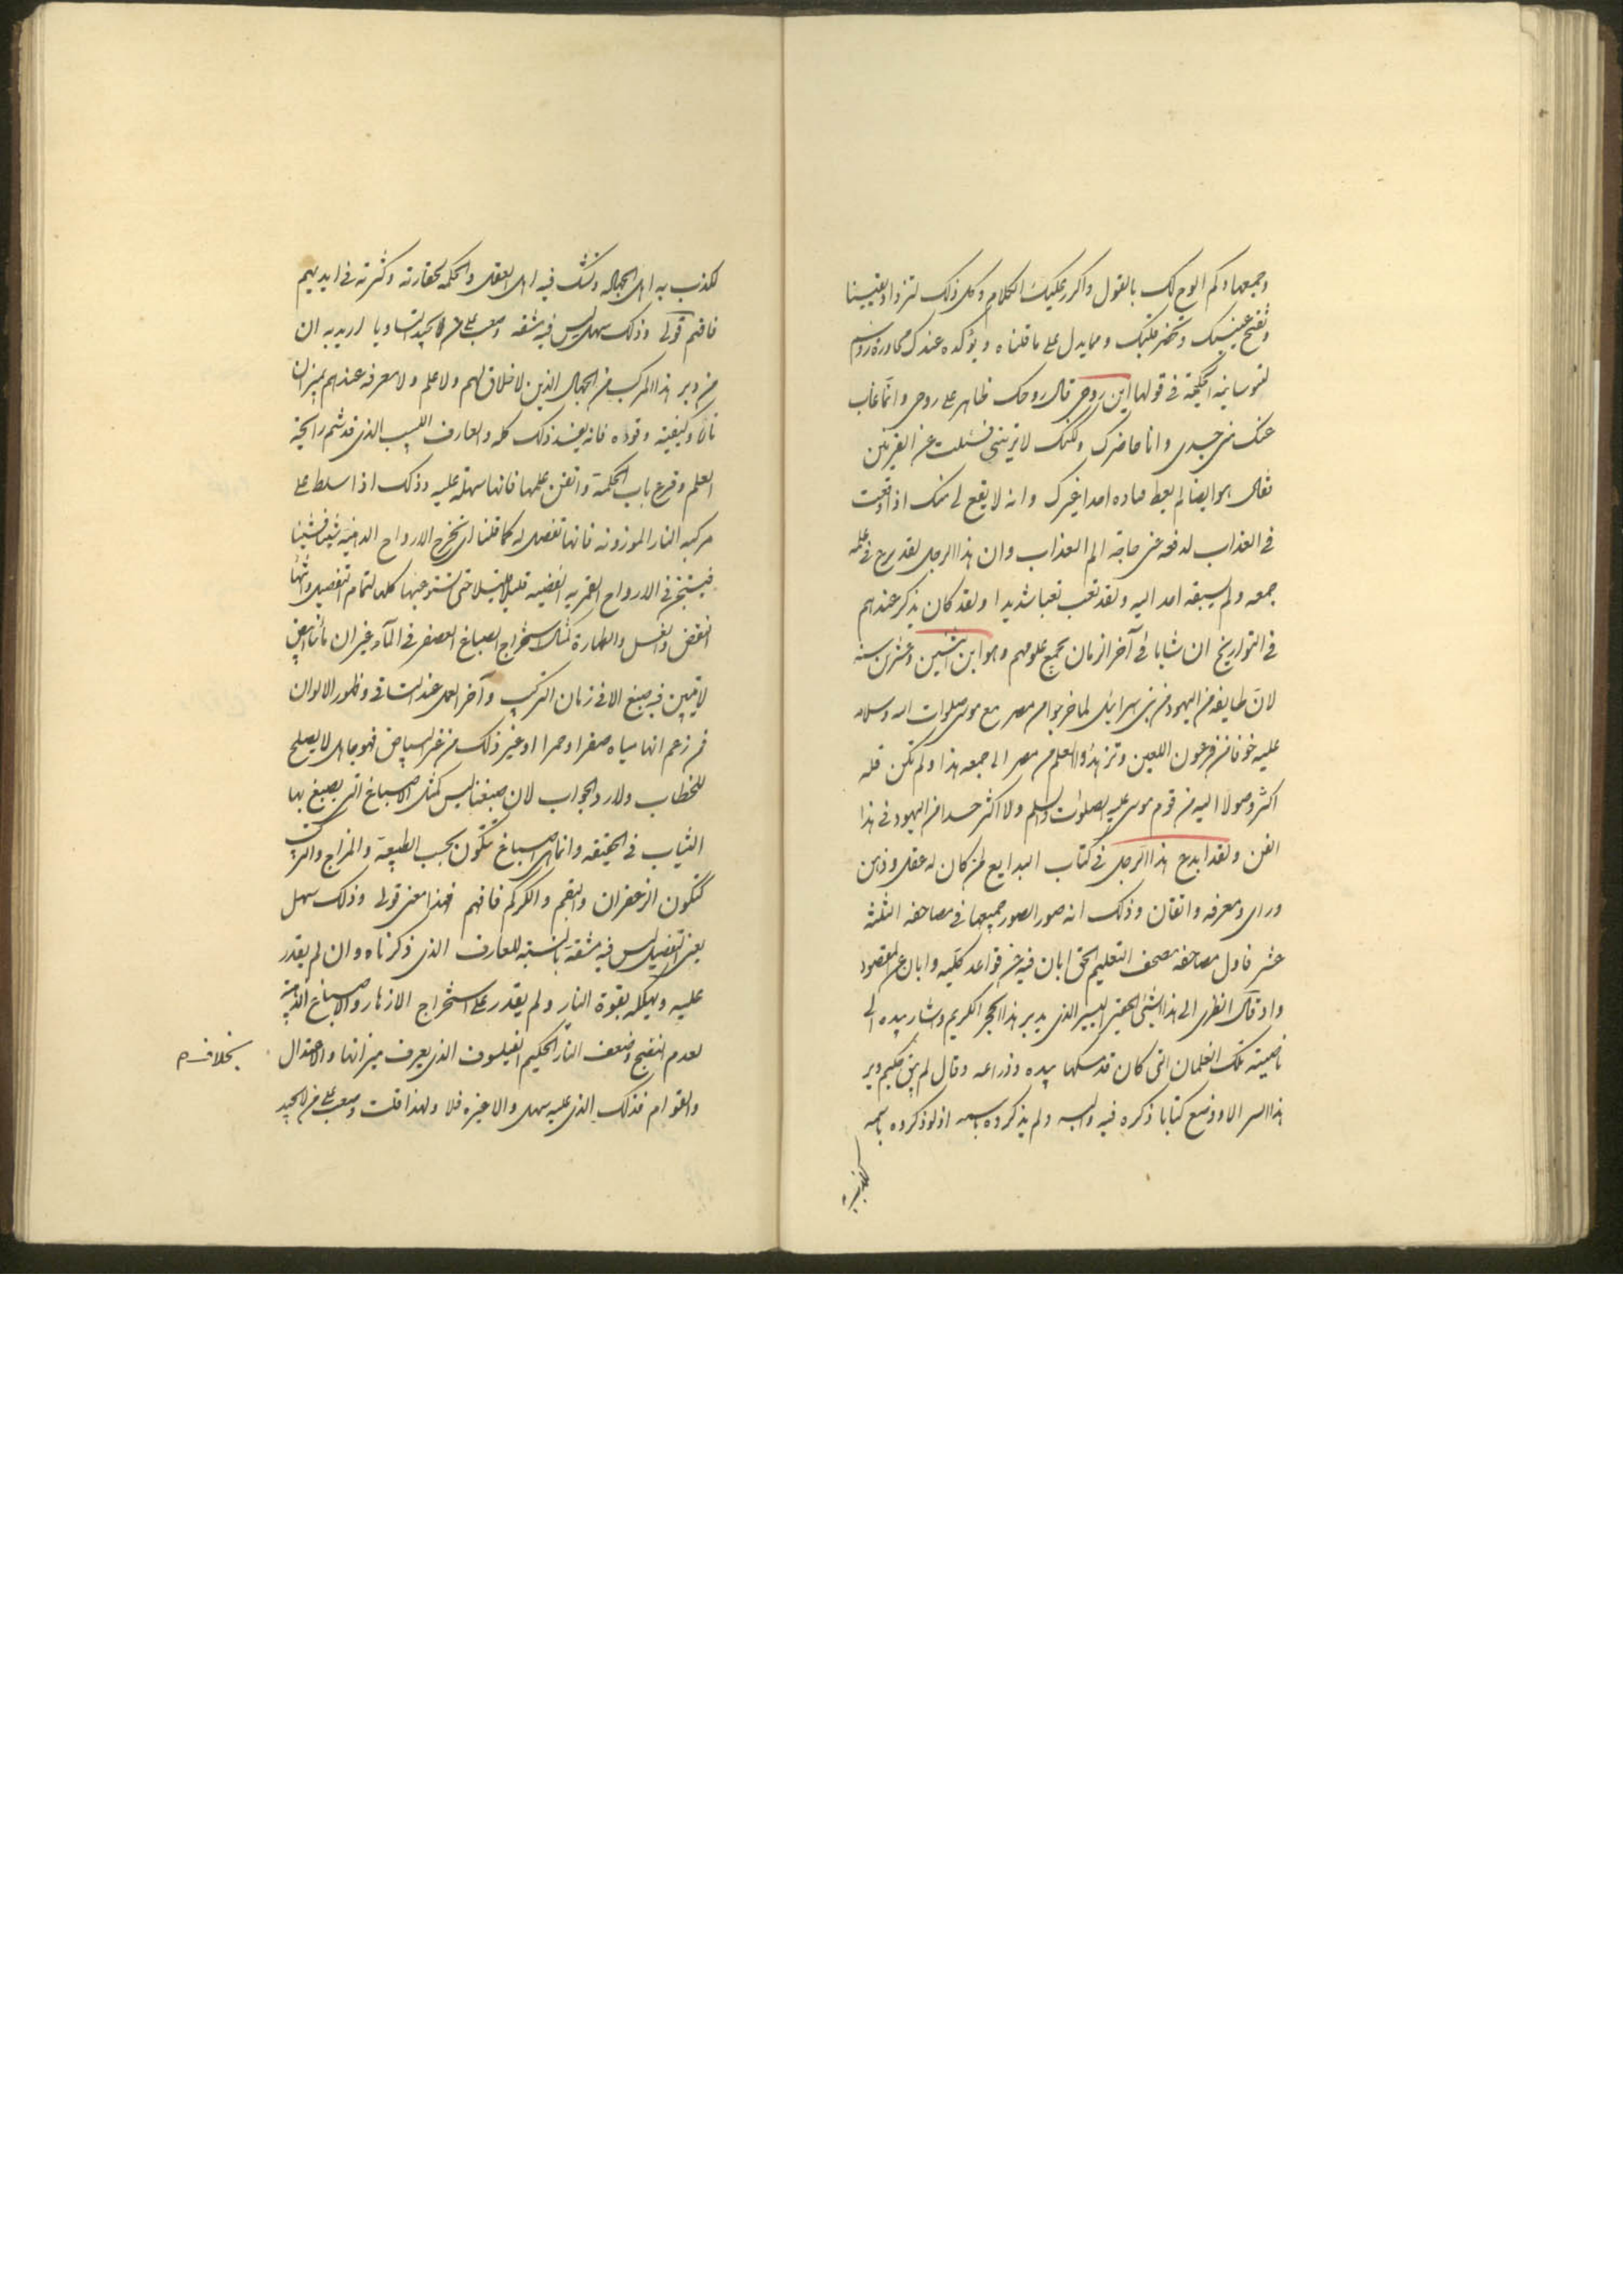 وجمعها وكم الوح لك بالقول واكرر عليك الكلام وكل ذلك لتزداد يقينا
وتفتح عينيك وتحضر قلبك ومما يدل على ما قلناه ويؤكده عندك محاورة روسم
لثوسانيه الحكيمة في قولها اين روحي قال روحك ظاهر على روحي وانما غاب
عنك مني جسدي وانا حاضرك ولكنك لا تريني فسئلت عن القربتين
فقال هو ايضا لم يعط احدا غيرك وانه لا يقع لي منك اذا وقعت
في العذاب لدفعه عني حاجة الم العذاب وان هذا الرجل لقد برع في علمه
جمعه ولم يسبقه احد اليه ولقد تعب تعبا شديدا ولقد كان يذكر عندهم
في التواريخ ان شابا في آخر الزمان يجمع علومهم وهو ابن اثنتين وعشرين سنة
لان طايفة من اليهود من بني اسرائيل لما خرجوا من مصر مع موسى صلوات الله وسلامه
عليه خوفا من فرعون اللعين وتزهدوا العلم من مصر الى جمعه هذا ولم تكن قلة
اكثر وصولا اليه من قوم موسى عليه الصلوات والسلم ولا اكثر حسدا من اليهود في هذا
الفن ولقد ابدع هذا الرجل في كتاب البدايع لمن كان له عقل وذهن
وراي ومعرفه واتقان وذلك انه صور الصور جميعها في مصاحفه الثلثة
عشر فاول مصاحفه مصحف التعليم الحق ابان فيه من قواعد كلية وابان عن المقصود
واوقال انظري الى هذا الشيء الحقير اليسير الذي يدبر هذا الحجر الكريم واشار بيده الى
ناصيته تلك الغلمان التي كان قد مسكها بيده وذراعه وقال لم يبق حكيم دبر
هذا السر الا ووضع كتابا ذكره فيه والبسه ولم يذكروه باسمه اذ لو ذكروه باسمه
لكذب به
لكذب به اهل الجهاله ولشك فيه اهل العقل والحكمة لحقارته وكثرته في ايديهم
فافهم قولي وذلك سهل ليس فيه مشقه وصعب على من لا يجيد التساويا اريد به ان
من دبر هذا المركب من الجهال الذين لا خلاق لهم ولا علم ولا معرفه عندهم بميزان
نارها وكيفيته وقوده فانه يفسد ذلك كله والعارف اللبيب الذي قد شم رايحة
العلم وقرع باب الحكمة واتقن علمها فانها سهلة عليه وذلك اذا سلط على
مركبه النار الموزونه فانها تفصل له كما قلنا اي تخرج الارواح الدهنية شيئا فشيئا
فيستجن في الارواح القمريه الفضيه قليلا قليلا حتى تستوعبها كلها لتمام التفصيل واثنا
النقض والغسل والطهارة كمثال استخراج الصباغ العصفر في الماء غير ان ماءنا ابيض
لا يتبين فيه صبغ الا في زمان التركيب وآخر العمل عند التساقي وظهور الالوان
فمن زعم انها مياه صفرا وحمرا او غير ذلك من غير البياض فهو جاهل لا يصلح
للخطاب ولا رد الجواب لان صبغنا ليس كمثل الاصباغ التي يصبغ بها
الثياب في الحقيقه وانما هي اصباغ تتكون بحسب الطبيعة والمزاج والتركيب
كتكون الزعفران والبقم والكركم فافهم فهذا معنى قولي وذلك سهل
يعني التفصيل ليس فيه مشقة بالنسبة للعارف الذي ذكرناه وان لم يقدر
عليه ويهلكه بقوة النار ولم يقدر على استخراج الازهار والاصباغ الدهنية
لعدم النضج وضعف النار الحكيم الفيلسوف الذي يعرف ميزانها والاعتدال
بخلاف
والقوام فذلك الذي عليه سهل والا غيره فلا ولهذا قلت وصعب على من لا يجيد